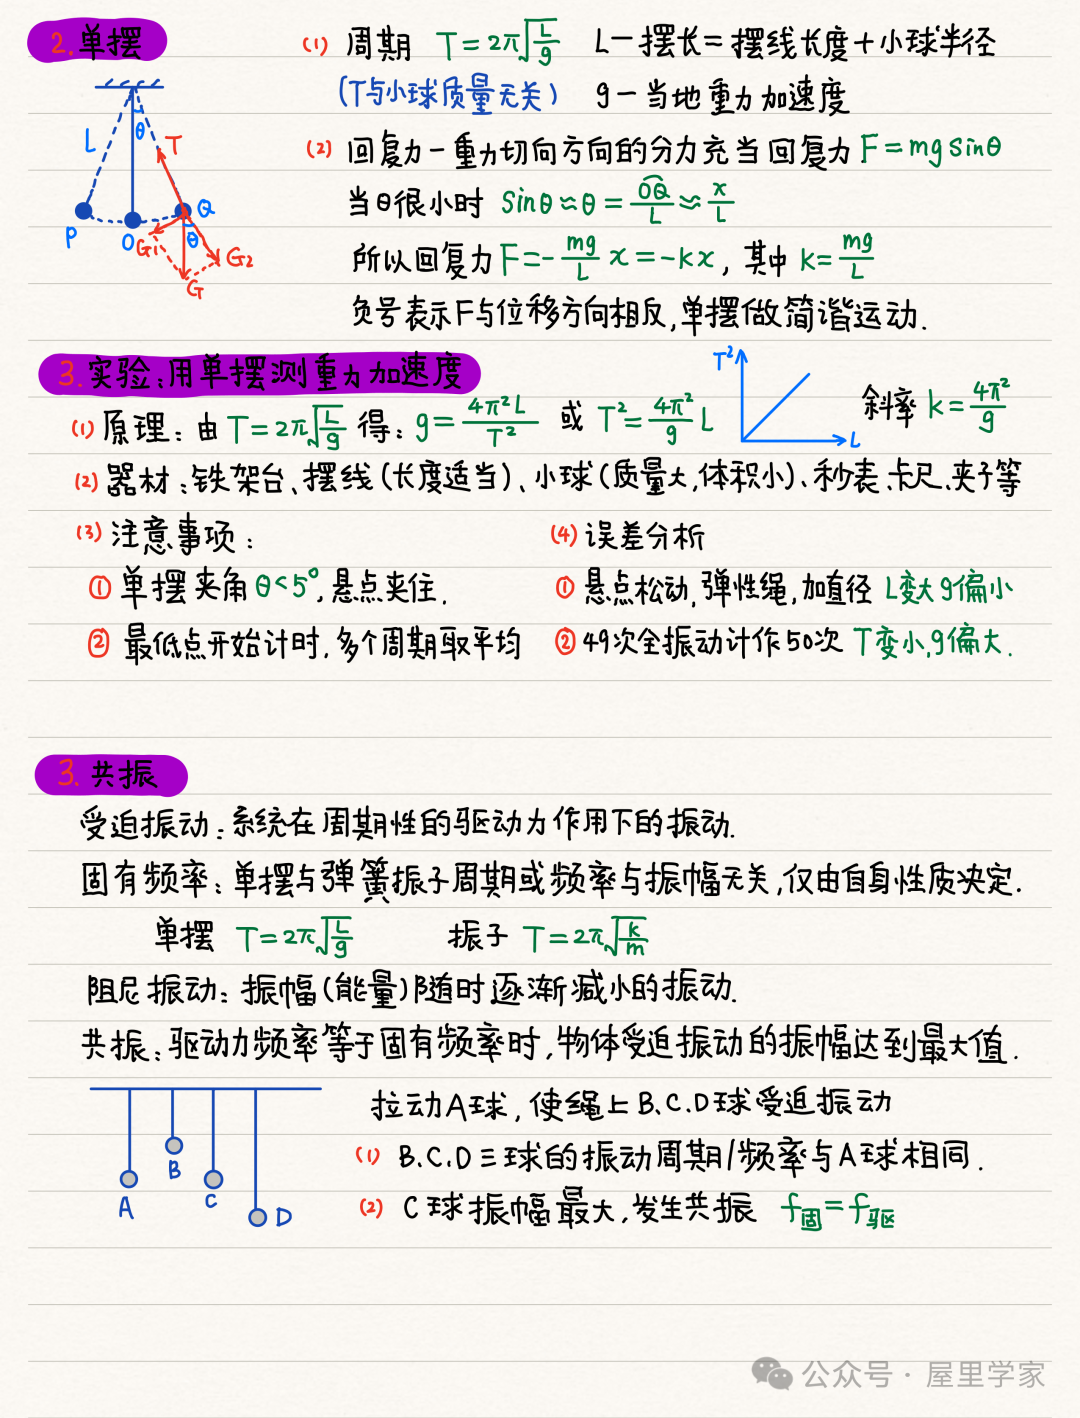 2.单摆
(1) 周期 T=2π√(L/g) L一摆长=摆线长度+小球半径
(T与小球质量无关) g一当地重力加速度
(2) 回复力一重力切向方向的分力充当回复力 F=mg sinθ
当θ很小时 Sinθ≈θ=OQ/L≈x/L
所以回复力F=-mg/L x=-kx, 其中 k=mg/L
负号表示F与位移方向相反,单摆做简谐运动.
θ
L
T
P
O
Q
G₁
θ
G₂
G
3.实验:用单摆测重力加速度
(1) 原理:由T=2π√(L/g) 得:g=4π²L/T² 或 T²=4π²/g L
T²
L
斜率 k=4π²/g
(2) 器材:铁架台、摆线(长度适当)、小球(质量大,体积小)、秒表.卡尺.夹子等
(3) 注意事项:
① 单摆夹角θ<5°,悬点夹住.
② 最低点开始计时,多个周期取平均
(4) 误差分析
① 悬点松动,弹性绳,加直径 L变大g偏小
② 49次全振动计作50次 T变小,g偏大.
3.共振
受迫振动:系统在周期性的驱动力作用下的振动.
固有频率:单摆与弹簧振子周期或频率与振幅无关,仅由自身性质决定.
单摆 T=2π√(L/g) 振子 T=2π√(k/m)
阻尼振动:振幅(能量)随时逐渐减小的振动.
共振:驱动力频率等于固有频率时,物体受迫振动的振幅达到最大值.
A
B
C
D
拉动A球,使绳上B.C.D球受迫振动
(1) B.C.D三球的振动周期/频率与A球相同.
(2) C球振幅最大,发生共振 f固=f驱
公众号·屋里学家